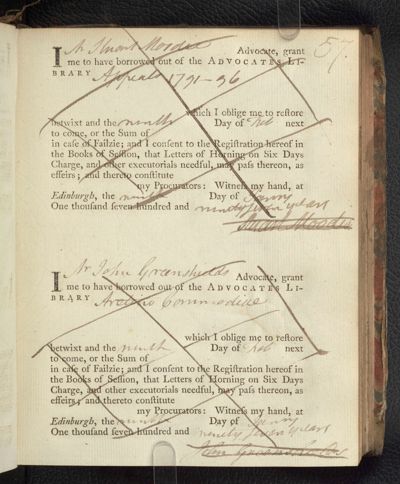 57.
I Mr Stuart Moodie Advocate, grant
me to have borrowed out of the ADVOCATES LI-
BRARY Appeals 1791-96
which I oblige me to reſtore
betwixt and the ninth Day of Feb next
to come, or the Sum of
in caſe of Failzie; and I conſent to the Regiſtration hereof in
the Books of Seſſion, that Letters of Horning on Six Days
Charge, and other executorials needful, may paſs thereon, as
effeirs; and thereto conſtitute
my Procurators: Witneſs my hand, at
Edinburgh, the ninth Day of Janry
One thouſand ſeven hundred and ninety seven years
Stuart Moodie
I Mr John Greenshields Advocate, grant
me to have borrowed out of the ADVOCATES LI-
BRARY
which I oblige me to reſtore
betwixt and the ninth Day of Feb next
to come, or the Sum of
in caſe of Failzie; and I conſent to the Regiſtration hereof in
the Books of Seſſion, that Letters of Horning on Six Days
Charge, and other executorials needful, may paſs thereon, as
effeirs; and thereto conſtitute
my Procurators: Witneſs my hand, at
Edinburgh, the Day of Janry
One thouſand ſeven hundred and ninety seven years
John Greenshields